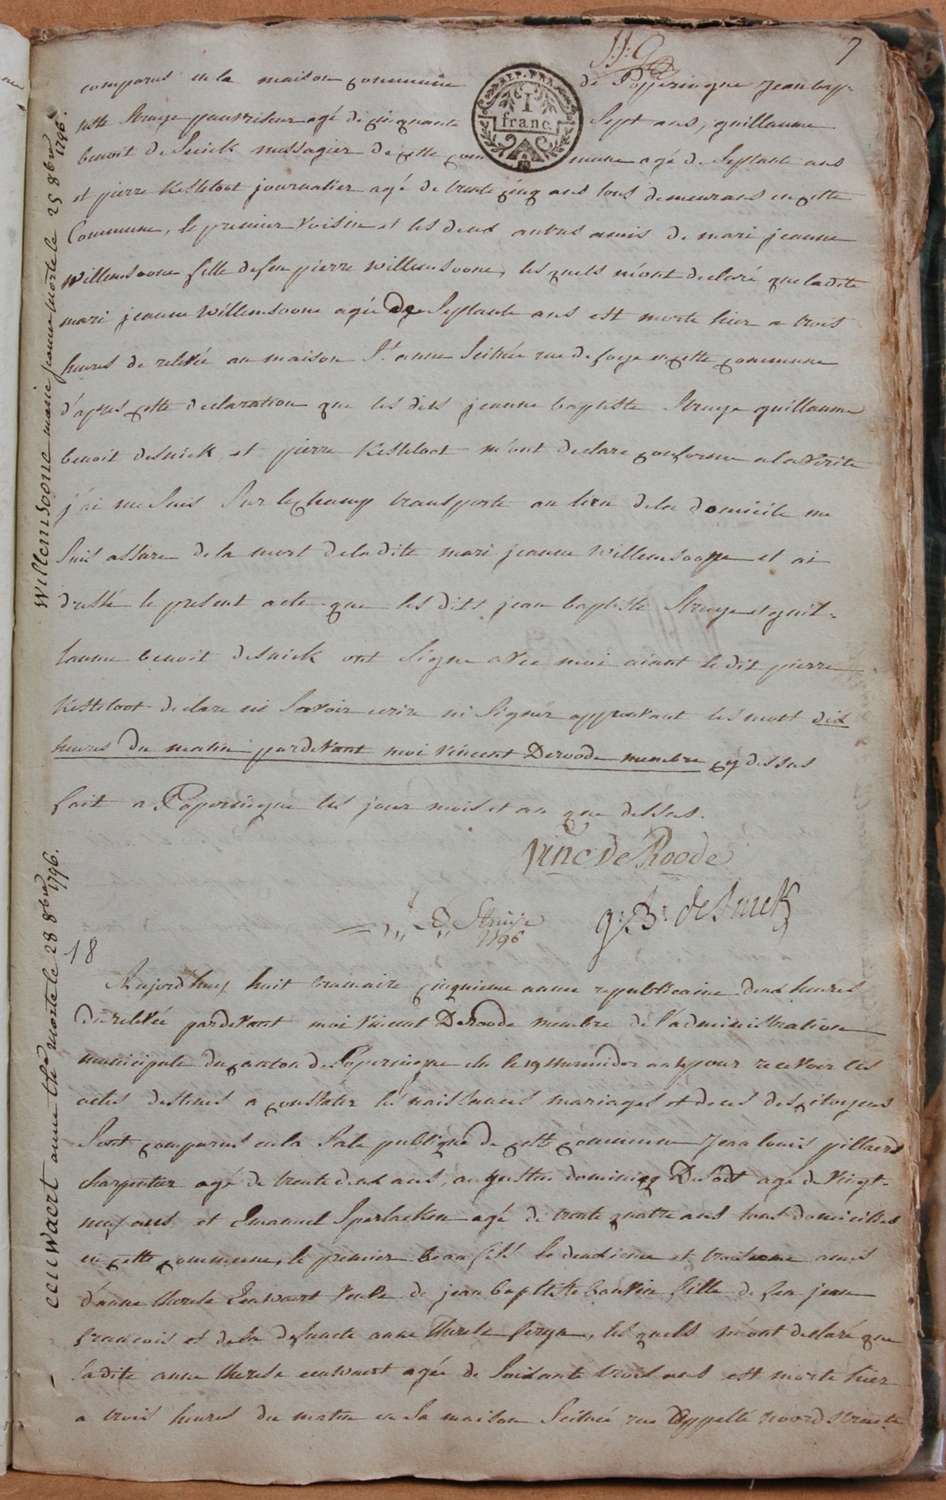 7
REP. FRA.
1
franc
comparus en la maison commune de Popperingue Jean bap-
tiste Struye agé de cinquante Sept ans, guillaume
benoit deSnick messagier de cette commune agé de Septante ans
et pierre Kesteloot journalier agé de trente cinq ans tous demeurans en cette
Commune, le premier voisin et les deux autres amis de mari jeanne
Willemsoone fille de feu pierre Willemsoone, les quels m'ont declaré que ladite
mari jeanne Willemsoone agée de Septante ans est morte hier a trois
heures de relevée au maison St anne Scituée rue de en cette commune
d'apres cette declaration que les dits jeanne baptiste Struye guillaume
benoit desnick et pierre Kesteloot m'ont declare conforme a la verite
j'ai me suis sur le champ transporte au lieu de la domicile me
suis assure de la mort de ladite mari jeanne Willemsoone et ai
dressé le present acte que les dits jean baptiste Struye et guil-
laume benoit desnick ont Signe avec moi aiant le dit pierre
Kesteloot declare ni savoir ecrire ni Signer approuvant les mots dix
heures du matin pardevant moi Vincent Deroode membre cy dessus
fait a Poperingue les jour mois et an que dessus.
Vinc De Roode
Struye
1796
g: B: deSnick
Willemsoone marie jeanne morte le 25 8bre 1796.
18
Aujordhuy huit brumaire cinquieme annee republicaine deux heures
de relevée pardevant moi Vincent Deroode membre de l'administration
municipale du canton de Poperingue elu le 19 thermidor an 4 pour recevoir les
actes destines a constater les naissances mariages et deces des citoyens
Sont comparus en la Sale publique de cette commune Jean louis pillaerd
charpentier agé de trente deux ans, augustin dominicq DeSodt agé de Vingt-
neuf ans et Emanuel Sparlacken agé de trente quatre ans tous domicilies
en cette commune, le premier beau fils le deuxieme et troisieme amis
d'anne therese Eeuwaert veuve de jean baptiste fille de feu jean
francois et de la defuncte anne therese , les quels m'ont declaré que
ladite anne therese eeuwaert agée de Soixante trois ans est morte hier
a trois heures du matin en sa maison Scituée rue appellé noordstraete
eeuwaert anne thé morte le 28 8bre 1796.